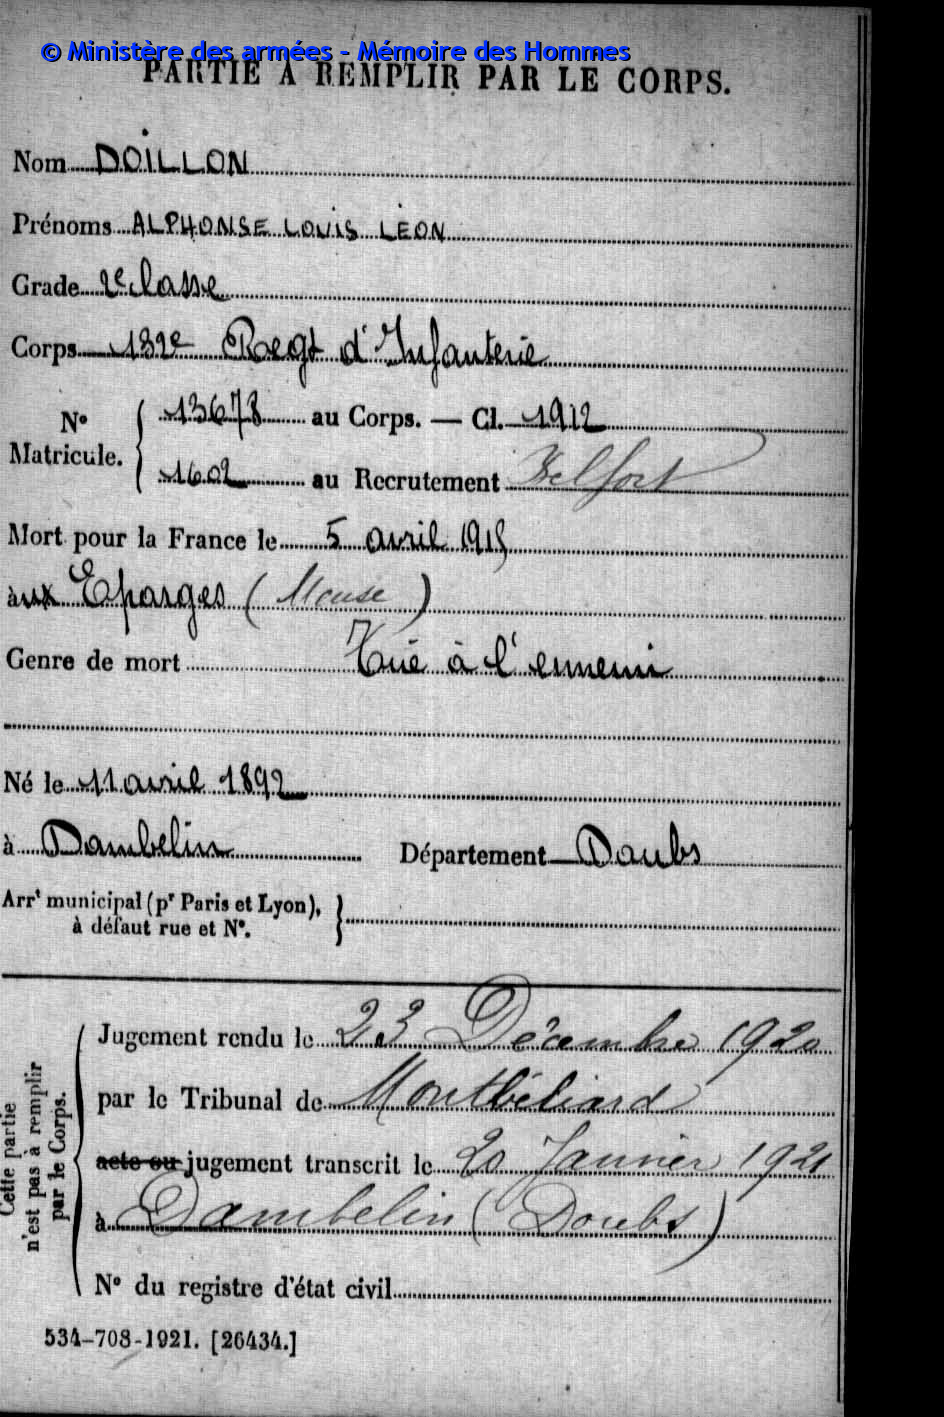 © Ministère des armées - Mémoire des Hommes
PARTIE À REMPLIR PAR LE CORPS.
Nom DOILLON
Prénoms ALPHONSE LOUIS LÉON
Grade 2e classe
Corps 132e Regt d'Infanterie
N° Matricule. { 13678 au Corps. — Cl. 1912
1602 au Recrutement Belfort
Mort pour la France le 5 avril 1915
aux Eparges (Meuse)
Genre de mort Tué à l'ennemi
Né le 11 avril 1892
à Dambelin Département Doubs
Arrt municipal (pr Paris et Lyon), }
à défaut rue et N°.
Cette partie
n'est pas à remplir
par le Corps.
Jugement rendu le 23 Décembre 1920
par le Tribunal de Montbéliard
acte ou jugement transcrit le 20 Janvier 1921
à Dambelin (Doubs)
N° du registre d'état civil
534-708-1921. [26434.]